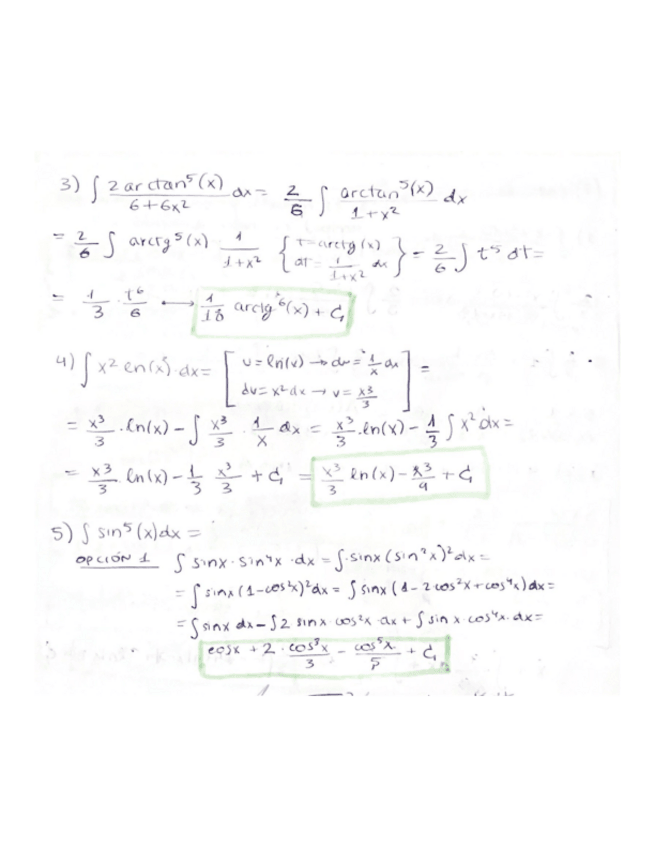 3) ∫ 2 arctan⁵(x) / (6+6x²) dx = 2/6 ∫ arctan⁵(x) / (1+x²) dx
= 2/6 ∫ arctg⁵(x) · 1/(1+x²) { t = arctg(x) dt = 1/(1+x²) dx } = 2/6 ∫ t⁵ dt =
= 1/3 · t⁶/6 → 1/18 arctg⁶(x) + C₁
4) ∫ x² ln(x) · dx = [ u = ln(x) → du = 1/x dx dv = x² dx → v = x³/3 ] =
= x³/3 · ln(x) - ∫ x³/3 · 1/x dx = x³/3 · ln(x) - 1/3 ∫ x² dx =
= x³/3 · ln(x) - 1/3 x³/3 + C₁ = x³/3 ln(x) - x³/9 + C₁
5) ∫ sin⁵(x) dx =
OPCIÓN 1 ∫ sinx · sin⁴x · dx = ∫ · sinx (sin²x)² dx =
= ∫ sinx (1-cos²x)² dx = ∫ sinx (1-2cos²x+cos⁴x) dx =
= ∫ sinx dx - ∫ 2 sinx · cos²x · dx + ∫ sinx · cos⁴x · dx =
cosx + 2 · cos³x/3 - cos⁵x/5 + C₁